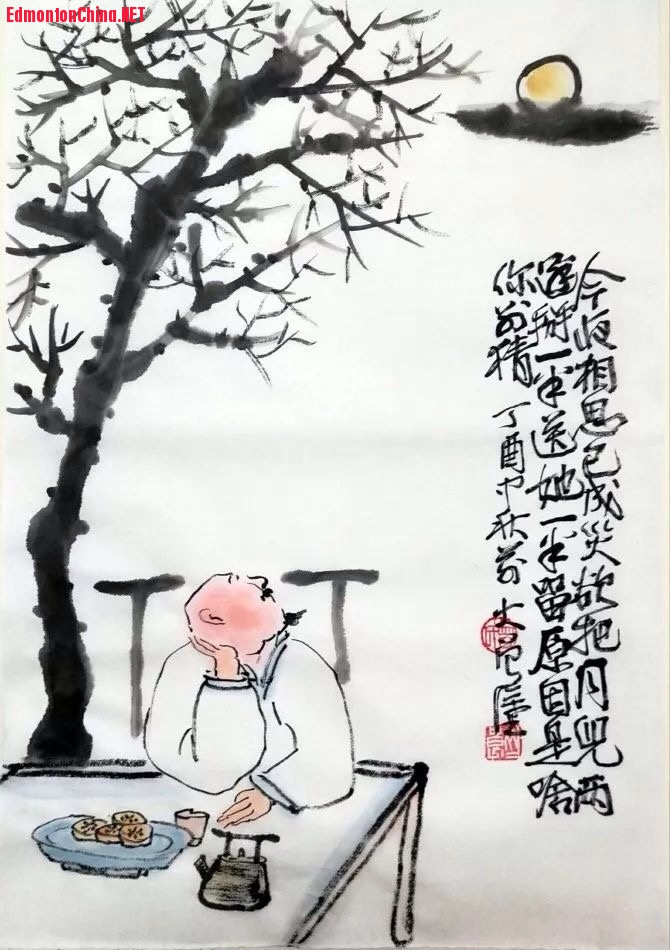 EdmontonChina.NET
今夜相思已成災欲把月兒兩
邊掰一半送她一半留原因是啥
你别猜 丁酉中秋前